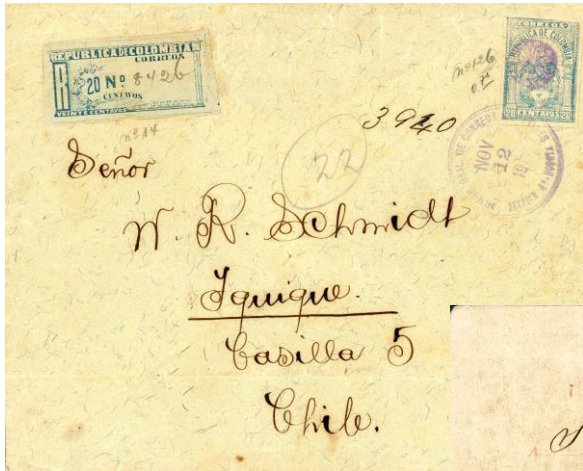 REPUBLICA DE COLOMBIA
CORREOS
R 20 Nº 8426
CENTAVOS
VEINTE CENTAVOS
nº 14
CORREOS
REPUBLICA DE COLOMBIA
20 CENTAVOS 20
nº 126
3940
22
NOV
12
Señor
W. R. Schmidt
Iquique
Casilla 5
Chile.